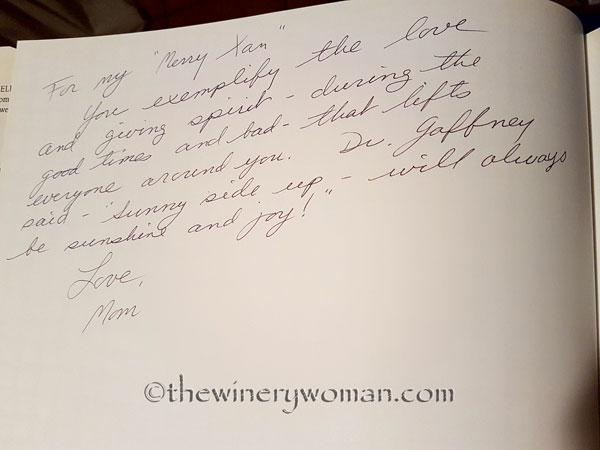 For my "Merry Xan"
You exemplify the love
and giving spirit - during the
good times and bad - that lifts
everyone around you. Dr. Gaffney
said - "Sunny side up - will always
be sunshine and joy!"
Love,
Mom
©thewinerywoman.com